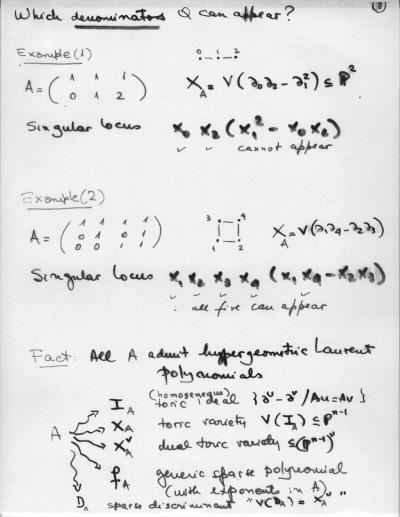 Which denominators Q can appear?
(8)
Example (1)
0 1 2
A = ( 1 1 1
0 1 2 )
X_A = V(∂₀∂₂ - ∂₁²) ⊆ P²
Singular locus x₀ x₂ (x₁² - x₀x₂)
✓ ✓ cannot appear
Example (2)
3 4
1 2
A = ( 1 1 1 1
0 1 0 1
0 0 1 1 )
X_A = V(∂₁∂₄ - ∂₂∂₃)
Singular locus x₁ x₂ x₃ x₄ (x₁x₄ - x₂x₃)
✓ ✓ ✓ ✓ ✓
: all five can appear
Fact: All A admit hypergeometric Laurent
polynomials
A
(homogeneous)
I_A toric ideal {∂ᵘ - ∂ᵛ / Au = Av}
X_A toric variety V(I_A) ⊆ Pⁿ⁻¹
X_A^∨ dual toric variety ⊆ (Pⁿ⁻¹)^∨
f_A generic sparse polynomial
(with exponents in A)
D_A sparse discriminant "V(D_A) = X_A^∨"